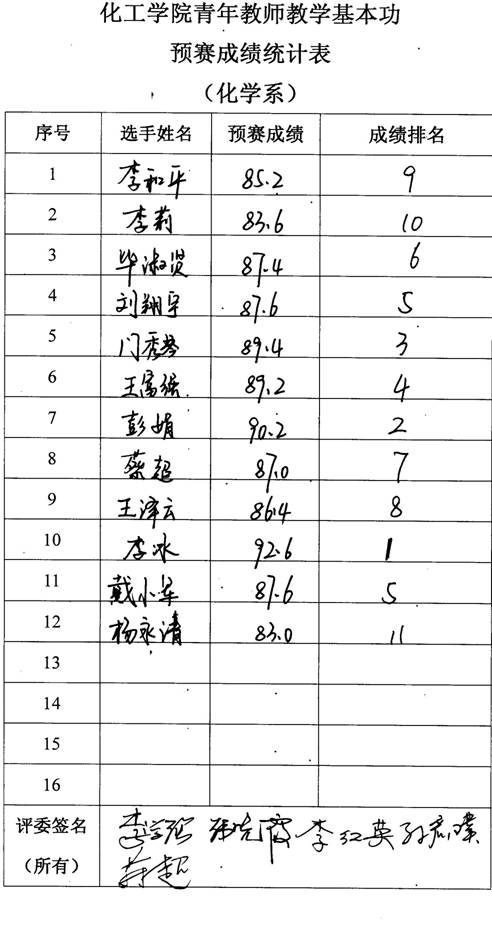 化工学院青年教师教学基本功
预赛成绩统计表
（化学系）
序号 选手姓名 预赛成绩 成绩排名
1 李和平 85.2 9
2 李莉 83.6 10
3 毕淑贤 87.4 6
4 刘翔宇 87.6 5
5 闫秀琴 89.4 3
6 王富强 89.2 4
7 彭娟 90.2 2
8 蔡超 87.0 7
9 王泽云 86.4 8
10 李冰 92.6 1
11 戴小军 87.6 5
12 杨永清 83.0 11
13
14
15
16
评委签名 李学强 李红英
（所有）